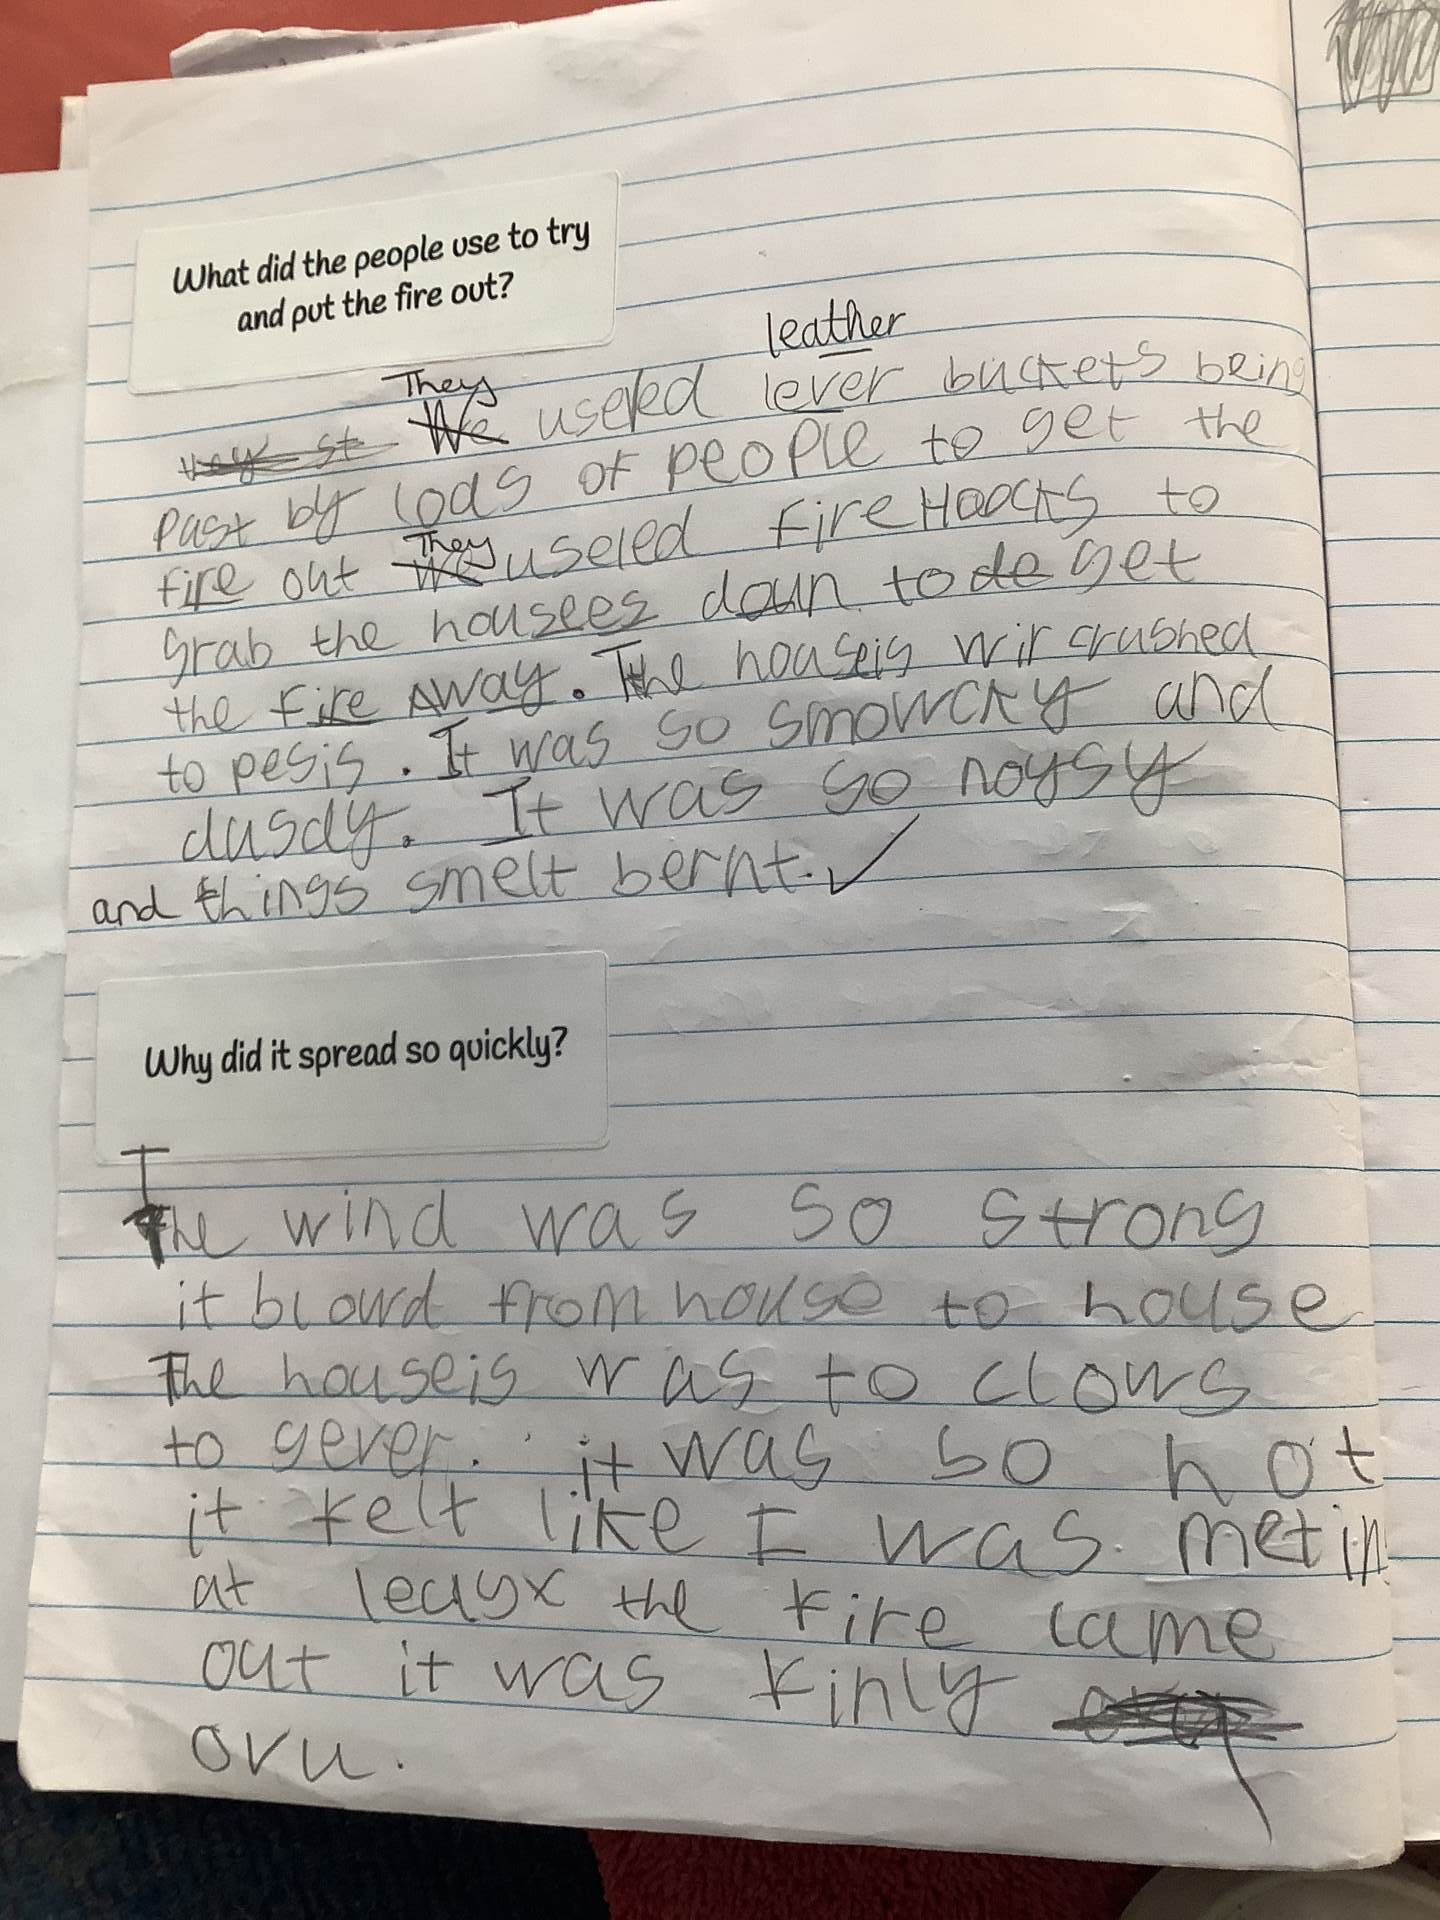 What did the people use to try
and put the fire out?
leather
They
We useled lever buckets being
past by lods of people to get the
They
fire out We useled fireHoocks to
grab the housees doun to de get
the fire Away. The houseis wir crushed
to pesis. It was so smowcky and
dusdy. It was so noysy
and things smelt bernt. ✓
Why did it spread so quickly?
The wind was so strong
it blowd from house to house
The houseis was to clows
to gever. it was so hot
it felt like I was meting
at the fire came
out it was finly
ovu.